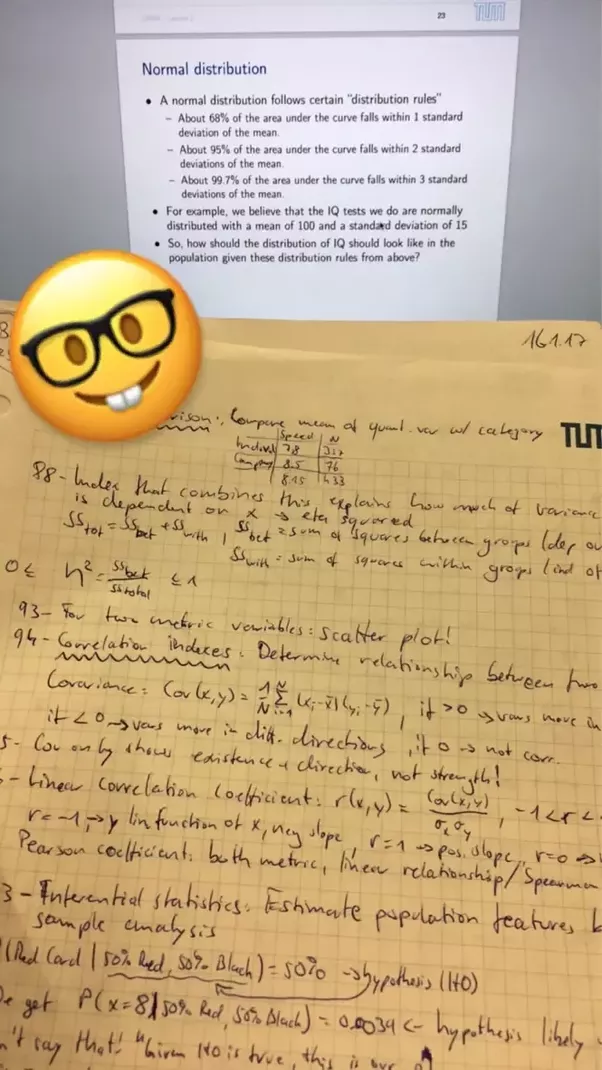 23 TUM
Normal distribution
• A normal distribution follows certain "distribution rules"
– About 68% of the area under the curve falls within 1 standard
deviation of the mean.
– About 95% of the area under the curve falls within 2 standard
deviations of the mean.
– About 99.7% of the area under the curve falls within 3 standard
deviations of the mean.
• For example, we believe that the IQ tests we do are normally
distributed with a mean of 100 and a standard deviation of 15
• So, how should the distribution of IQ should look like in the
population given these distribution rules from above?
Compare mean of quant. var w/ category
Speed N
7.8
8.5 76
8.15 433
88 - Index that combines this, explains how much of variance
is dependent on x → eta squared
SStot = SSbet + SSwith, SSbet = sum of squares between groups
SSwith = sum of squares within groups
0 ≤ η² = SSbet/SStotal ≤ 1
93 - For two metric variables: scatter plot!
94 - Correlation indexes: Determine relationship between two
Covariance: Cov(x,y) = 1/N Σ(i=1 to N) (xi-x̄)(yi-ȳ), if >0 → vars move in
if <0 → vars move in diff. directions, if 0 → not corr.
5 - Cov only shows existence + direction, not strength!
- Linear correlation coefficient: r(x,y) = Cov(x,y)/σxσy, -1<r<
r=-1, → y lin function of x, neg slope, r=1 → pos. slope, r=0 →
Pearson coefficient: both metric, linear relationship/Spearman
3 - Inferential statistics: Estimate population features
sample analysis
(Red Card | 50% Red, 50% Black) = 50% → hypothesis (H0)
get P(x=8 | 50% Red, 50% Black) = 0.0039 ← hypothesis likely
n't say that! "Given H0 is true, this is